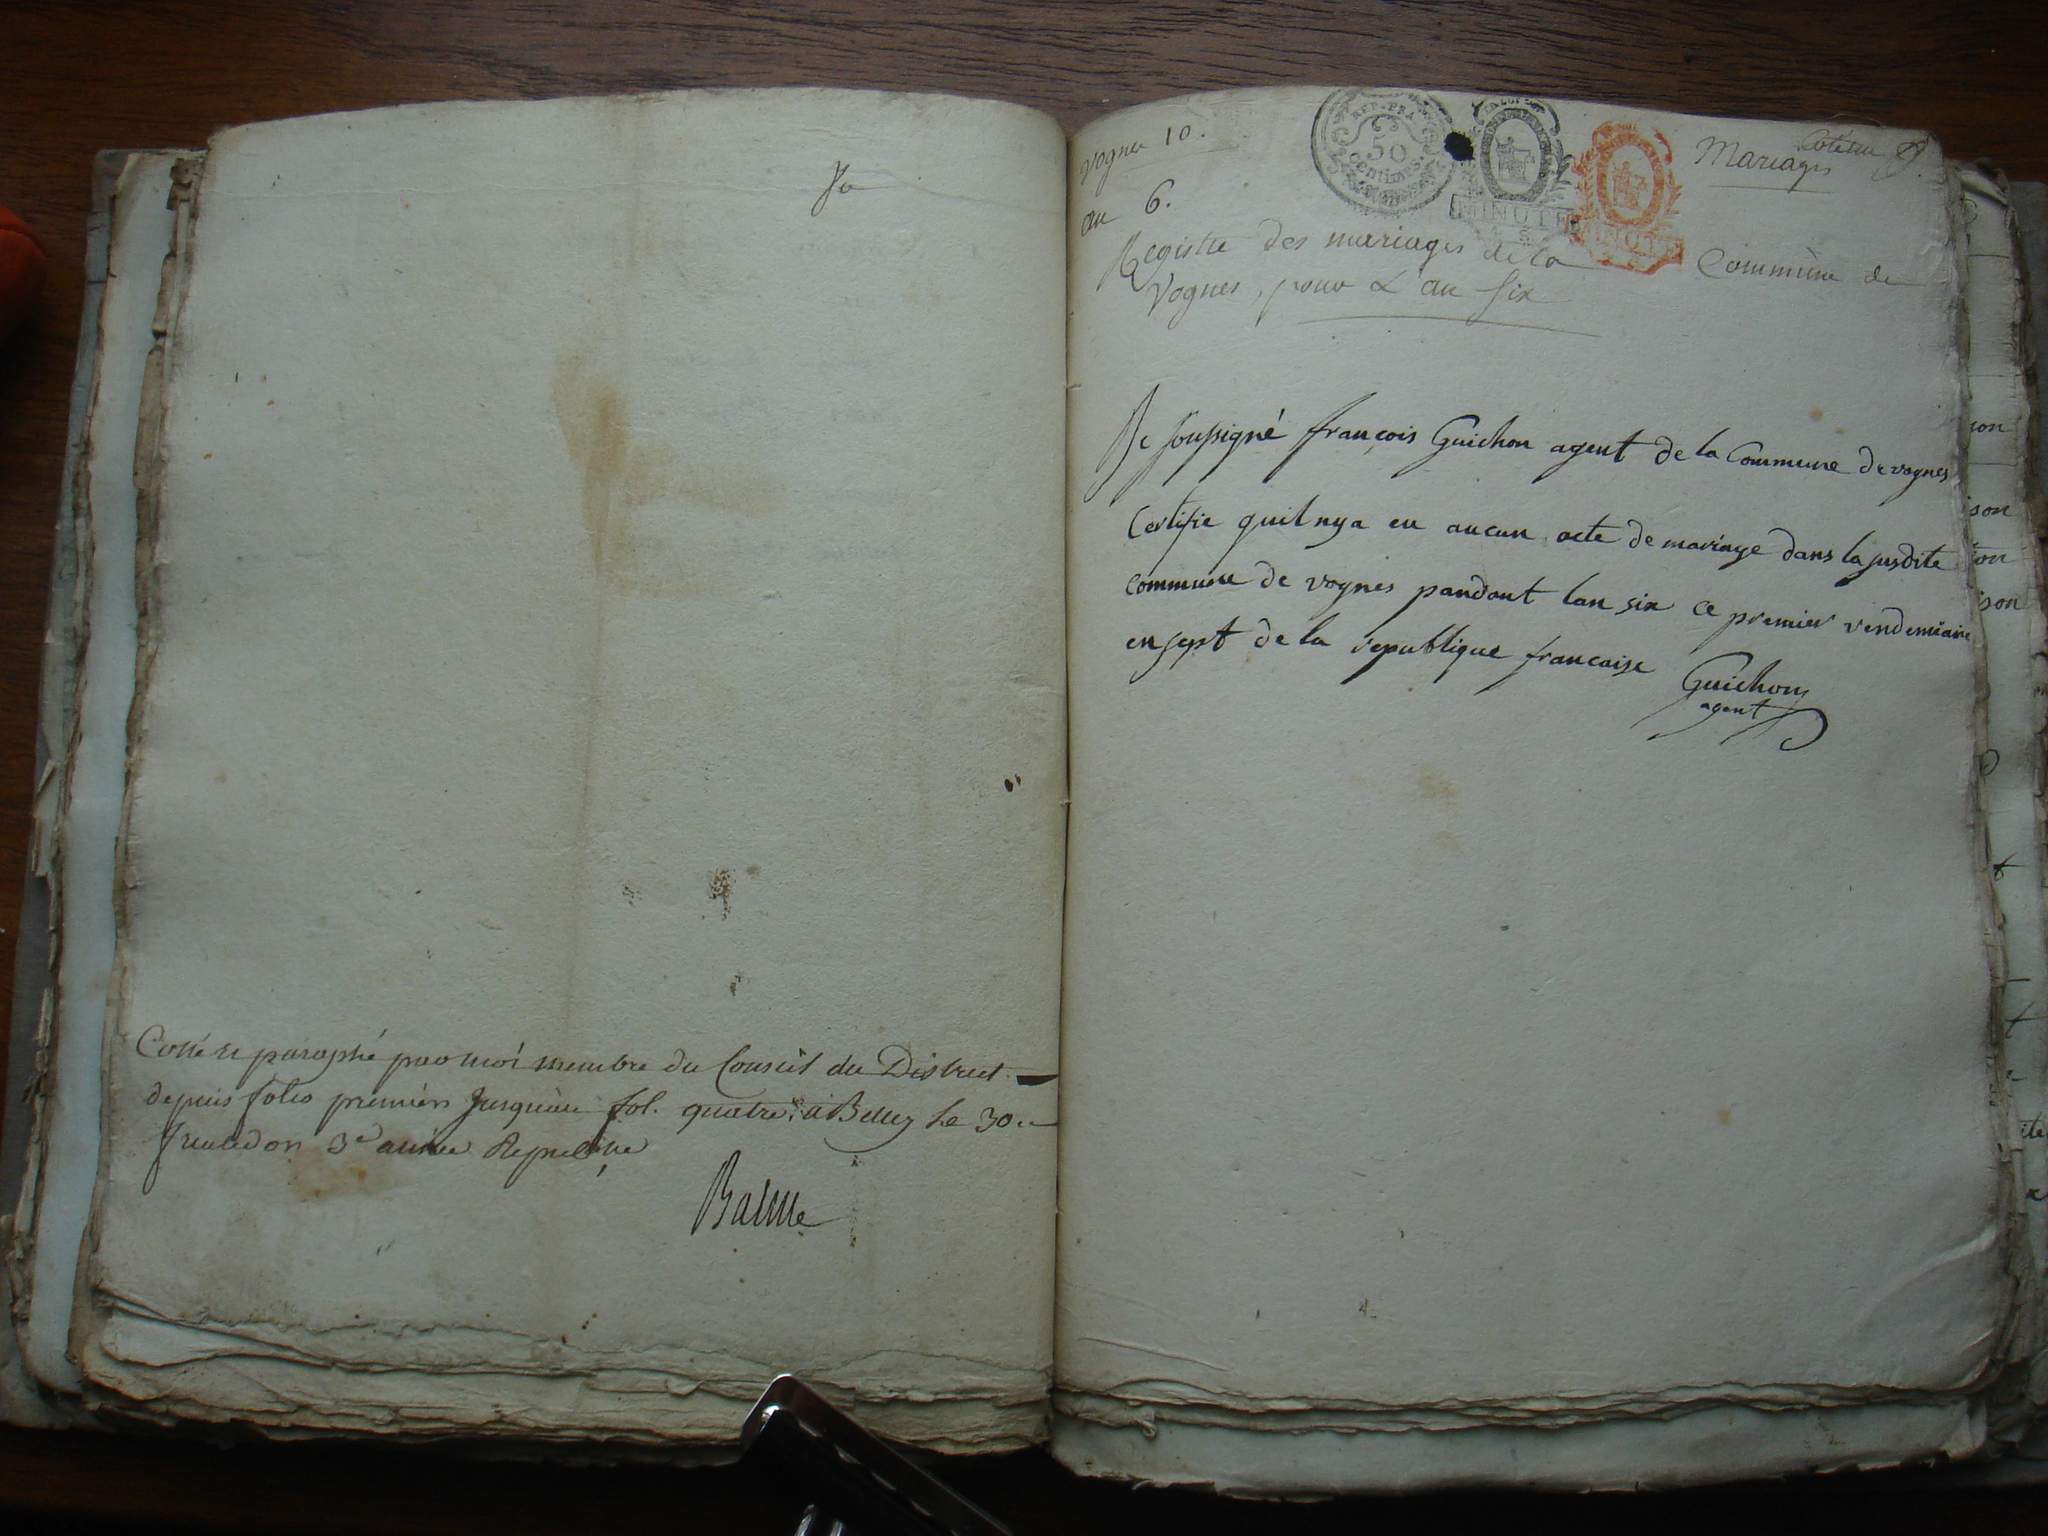 Cotté et paraphé par moi membre du Conseil du District
depuis folio premier Jusqu'au fol. quatre. a Belley le 30
3e année Republique
Balme
Vognes 10.
an 6.
REP. FRA
50
centimes.
LA LOI
MINUTE
MINUTE
Mariages
Registre des mariages de la Commune de
Vognes, pour L'an six
Je soussigné françois Guichon agent de la Commune de vognes
Certifie quil nya eu aucun acte de mariage dans la susdite
commune de vognes pandant lan six ce premier vendemiaire
en sept de la republique francaise Guichon
agent